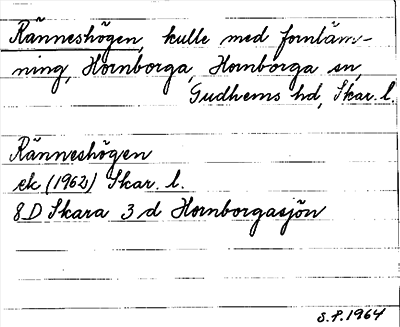 Ränneshögen, kulle med fornläm-
ning, Hornborga, Hornborga sn,
Gudhems hd, Skar. l.
Ränneshögen
ek (1962) Skar. l.
8D Skara 3 d Hornborgasjön
S.P. 1964